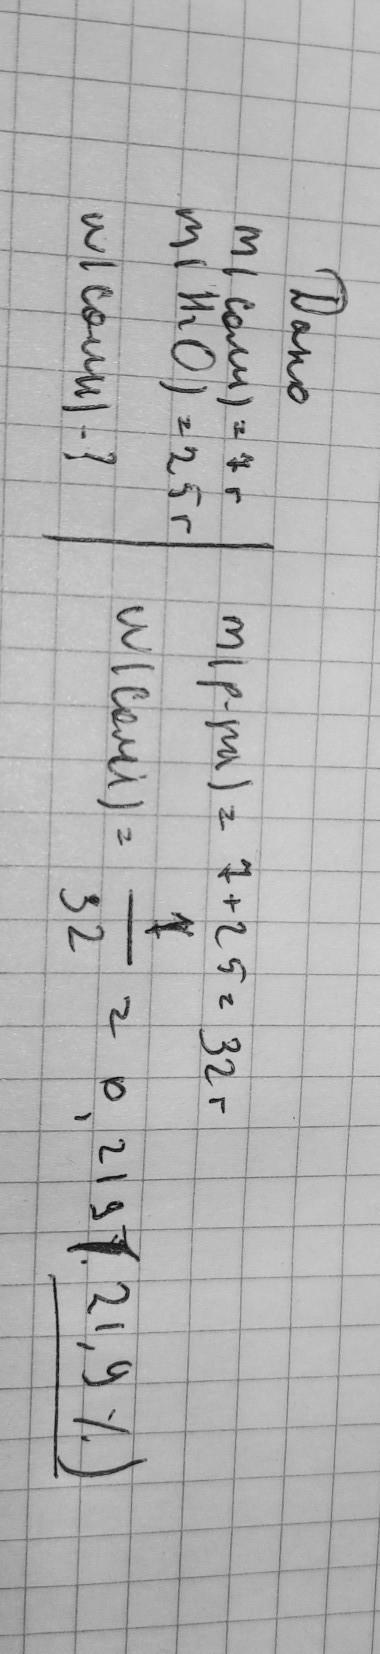 Дано
m(соли) = 7 г
m(H₂O) = 25 г
w(соли) - ?
m(р-ра) = 7 + 25 = 32 г
w(соли) = 7/32 = 0,219 (21,9 %)